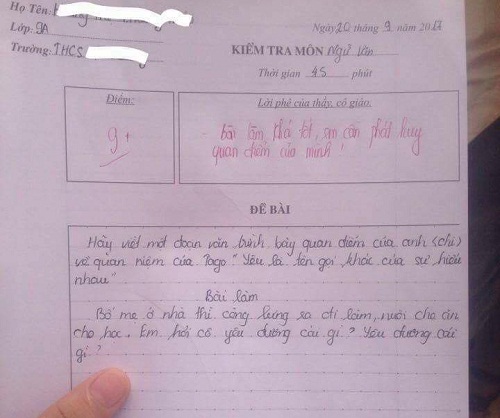 Họ Tên:
Ngày 20 tháng 9 năm 2017
Lớp: 9A
KIỂM TRA MÔN Ngữ văn
Trường: THCS
Thời gian 45 phút
Điểm:
9+
Lời phê của thầy, cô giáo.
- bài làm khá tốt, em cần phát huy
quan điểm của mình!
ĐỀ BÀI
Hãy viết một đoạn văn trình bày quan điểm của anh (chị)
về quan niệm của Tago "Yêu là tên gọi khác của sự hiểu
nhau"
Bài làm
Bố mẹ ở nhà thì còng lưng ra đi làm, nuôi cho ăn
cho học. Em hỏi cô yêu đương cái gì? Yêu đương cái
gì?